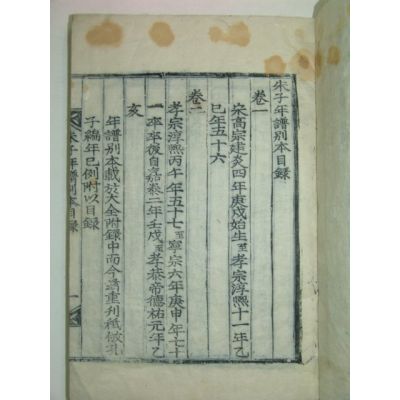 朱子年譜別本目録
卷一
宋高宗建炎四年庚戌始生至孝宗淳熙十一年乙
巳年五十六
卷二
孝宗淳熙丙午年五十七至寧宗六年庚申年七十
一卒卒後自嘉泰二年壬戌至孝恭帝德祐元年乙
亥
年譜別本載於大全附録中而今番重刊秪倣孔
子編年已例附以目録
朱子年譜別本目録
一